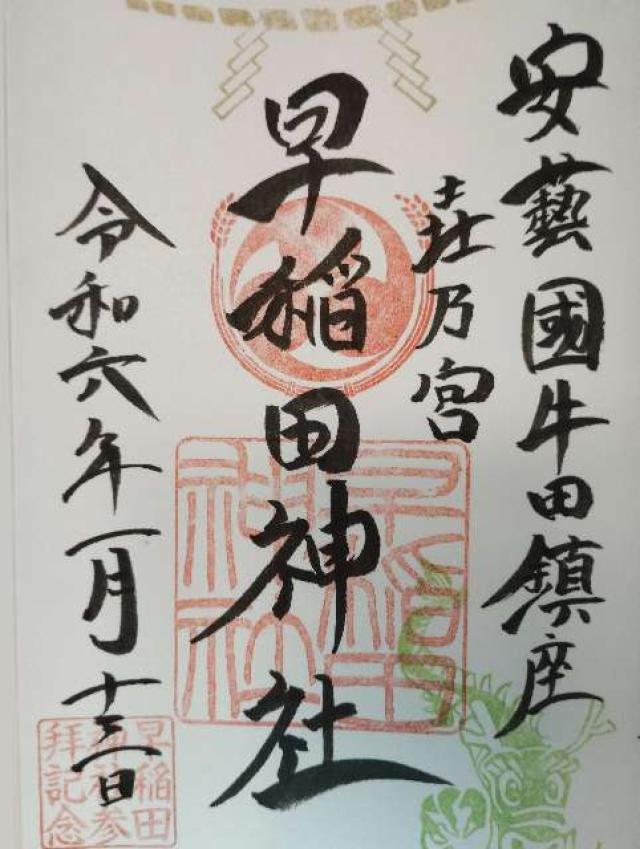 安藝國牛田鎮座
乃宮
早稲田神社
令和六年一月十三日
早稲田
神社
早稲田
神社参
拝記念